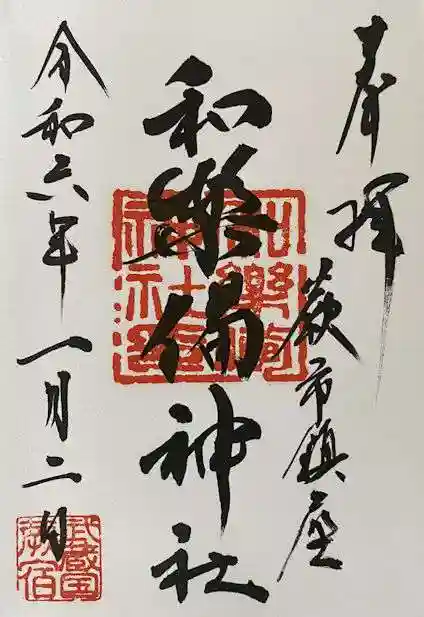 奉拝
蕨市鎮座
和樂備神社
令和六年一月二日
武蔵国
蕨宿